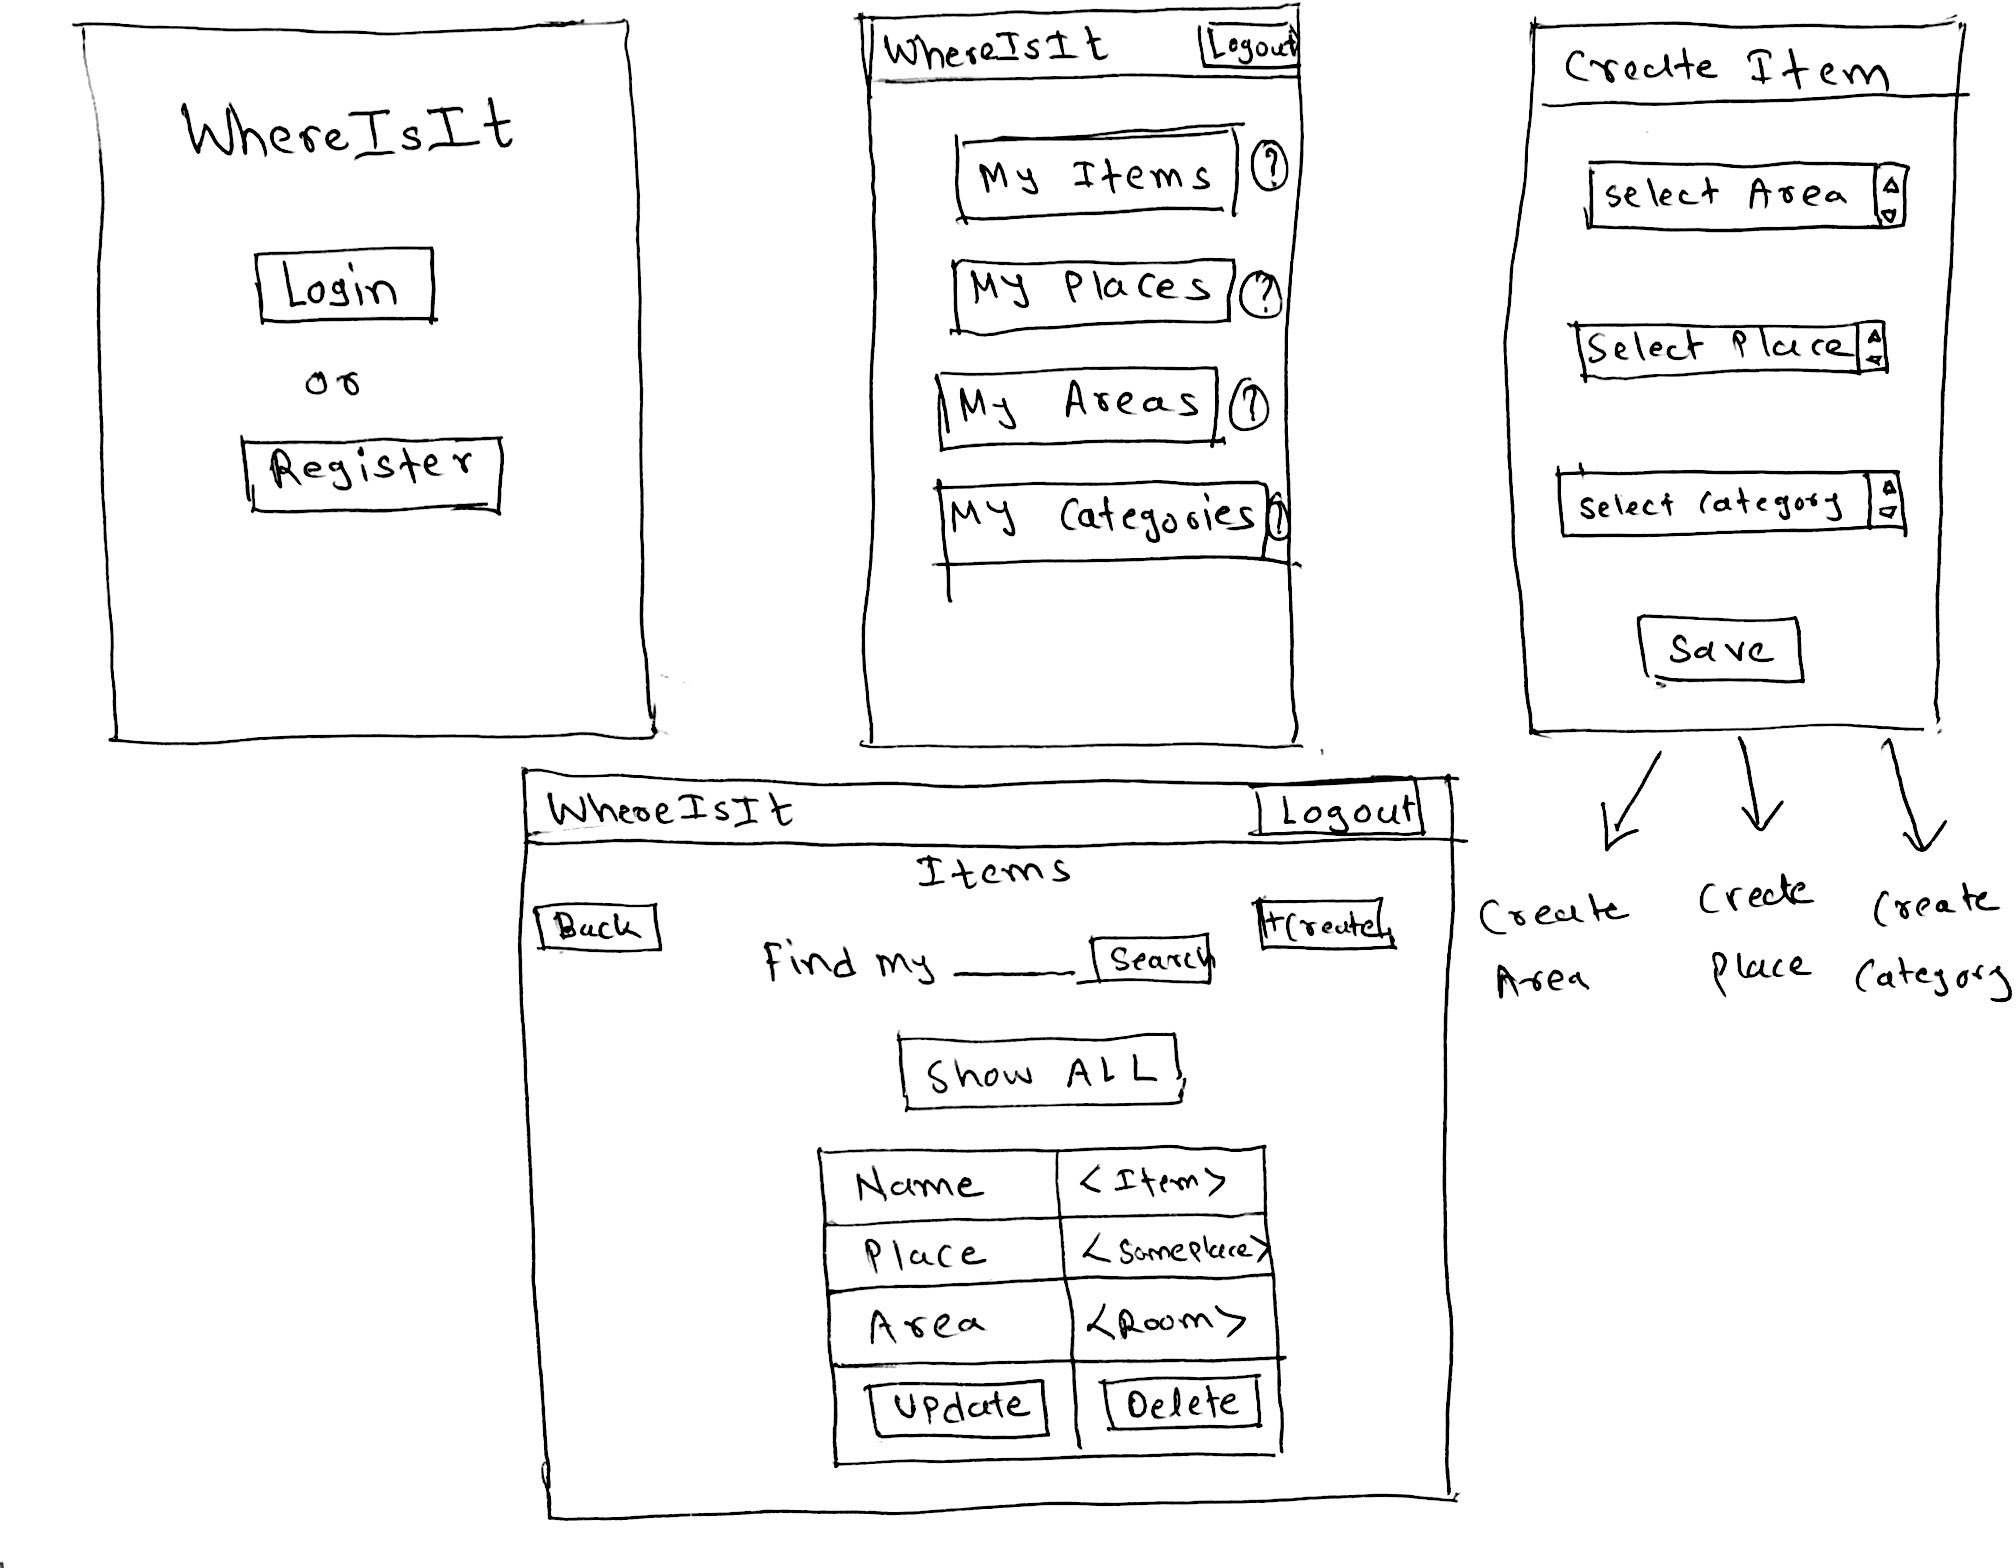 WhereIsIt
Login
or
Register
WhereIsIt Logout
My Items ?
My Places ?
My Areas ?
My Categories ?
Create Item
Select Area
Select Place
Select Category
Save
Create Area
Create Place
Create Category
WhereIsIt Logout
Items
Back
+Create
Find my ______ Search
Show ALL
Name <Item>
Place <Someplace>
Area <Room>
Update Delete